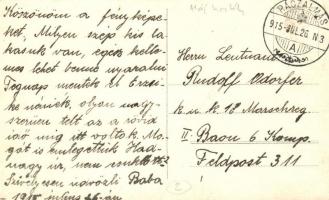 Köszönöm a fényképe-
ket. Milyen szép kis la-
kásunk van, egész kelle-
mes lehet benne nyaralni
Tegnap mentek el Erzsi-
ke néniék, olyan nagy-
szerűen telt az a rövid
idő míg itt voltak. Ma-
gát is emlegettük Had-
nagy úr, nem
Szívélyesen üdvözli Baba
1915 julius 26-án
915 JUL 26 N3
A
Herrn Leutnant
Rudolf Odorfer
k.u.k. 18 Marschreg.
II. Baon 6 Komp.
Feldpost 311
2